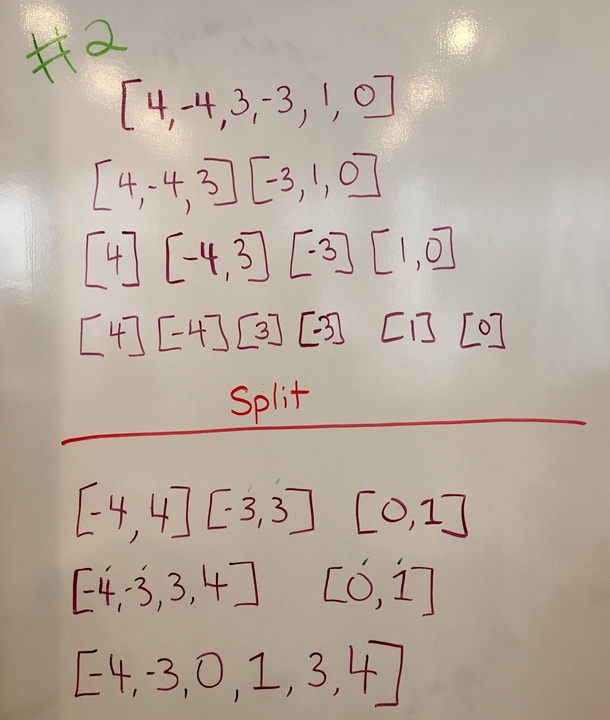 #2
[4,-4,3,-3,1,0]
[4,-4,3] [-3,1,0]
[4] [-4,3] [-3] [1,0]
[4] [-4] [3] [-3] [1] [0]
Split
[-4,4] [-3,3] [0,1]
[-4,-3,3,4] [0,1]
[-4,-3,0,1,3,4]